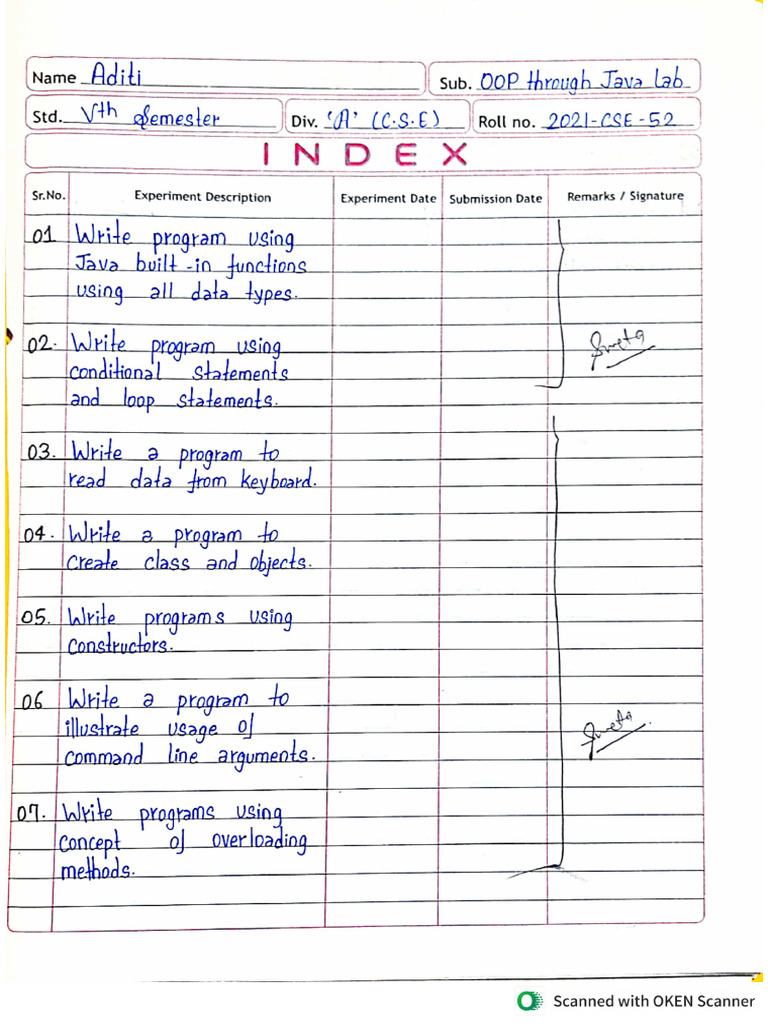 Name Aditi
Sub. OOP through Java Lab
Std. Vth Semester
Div. 'A' (C.S.E)
Roll no. 2021-CSE-52
INDEX
Sr.No. Experiment Description Experiment Date Submission Date Remarks / Signature
01 Write program using
Java built-in functions
using all data types.
02. Write program using
conditional statements
and loop statements.
03. Write a program to
read data from keyboard.
04. Write a program to
create class and objects.
05. Write programs using
constructors.
06 Write a program to
illustrate usage of
command line arguments.
07. Write programs using
concept of overloading
methods.
Scanned with OKEN Scanner